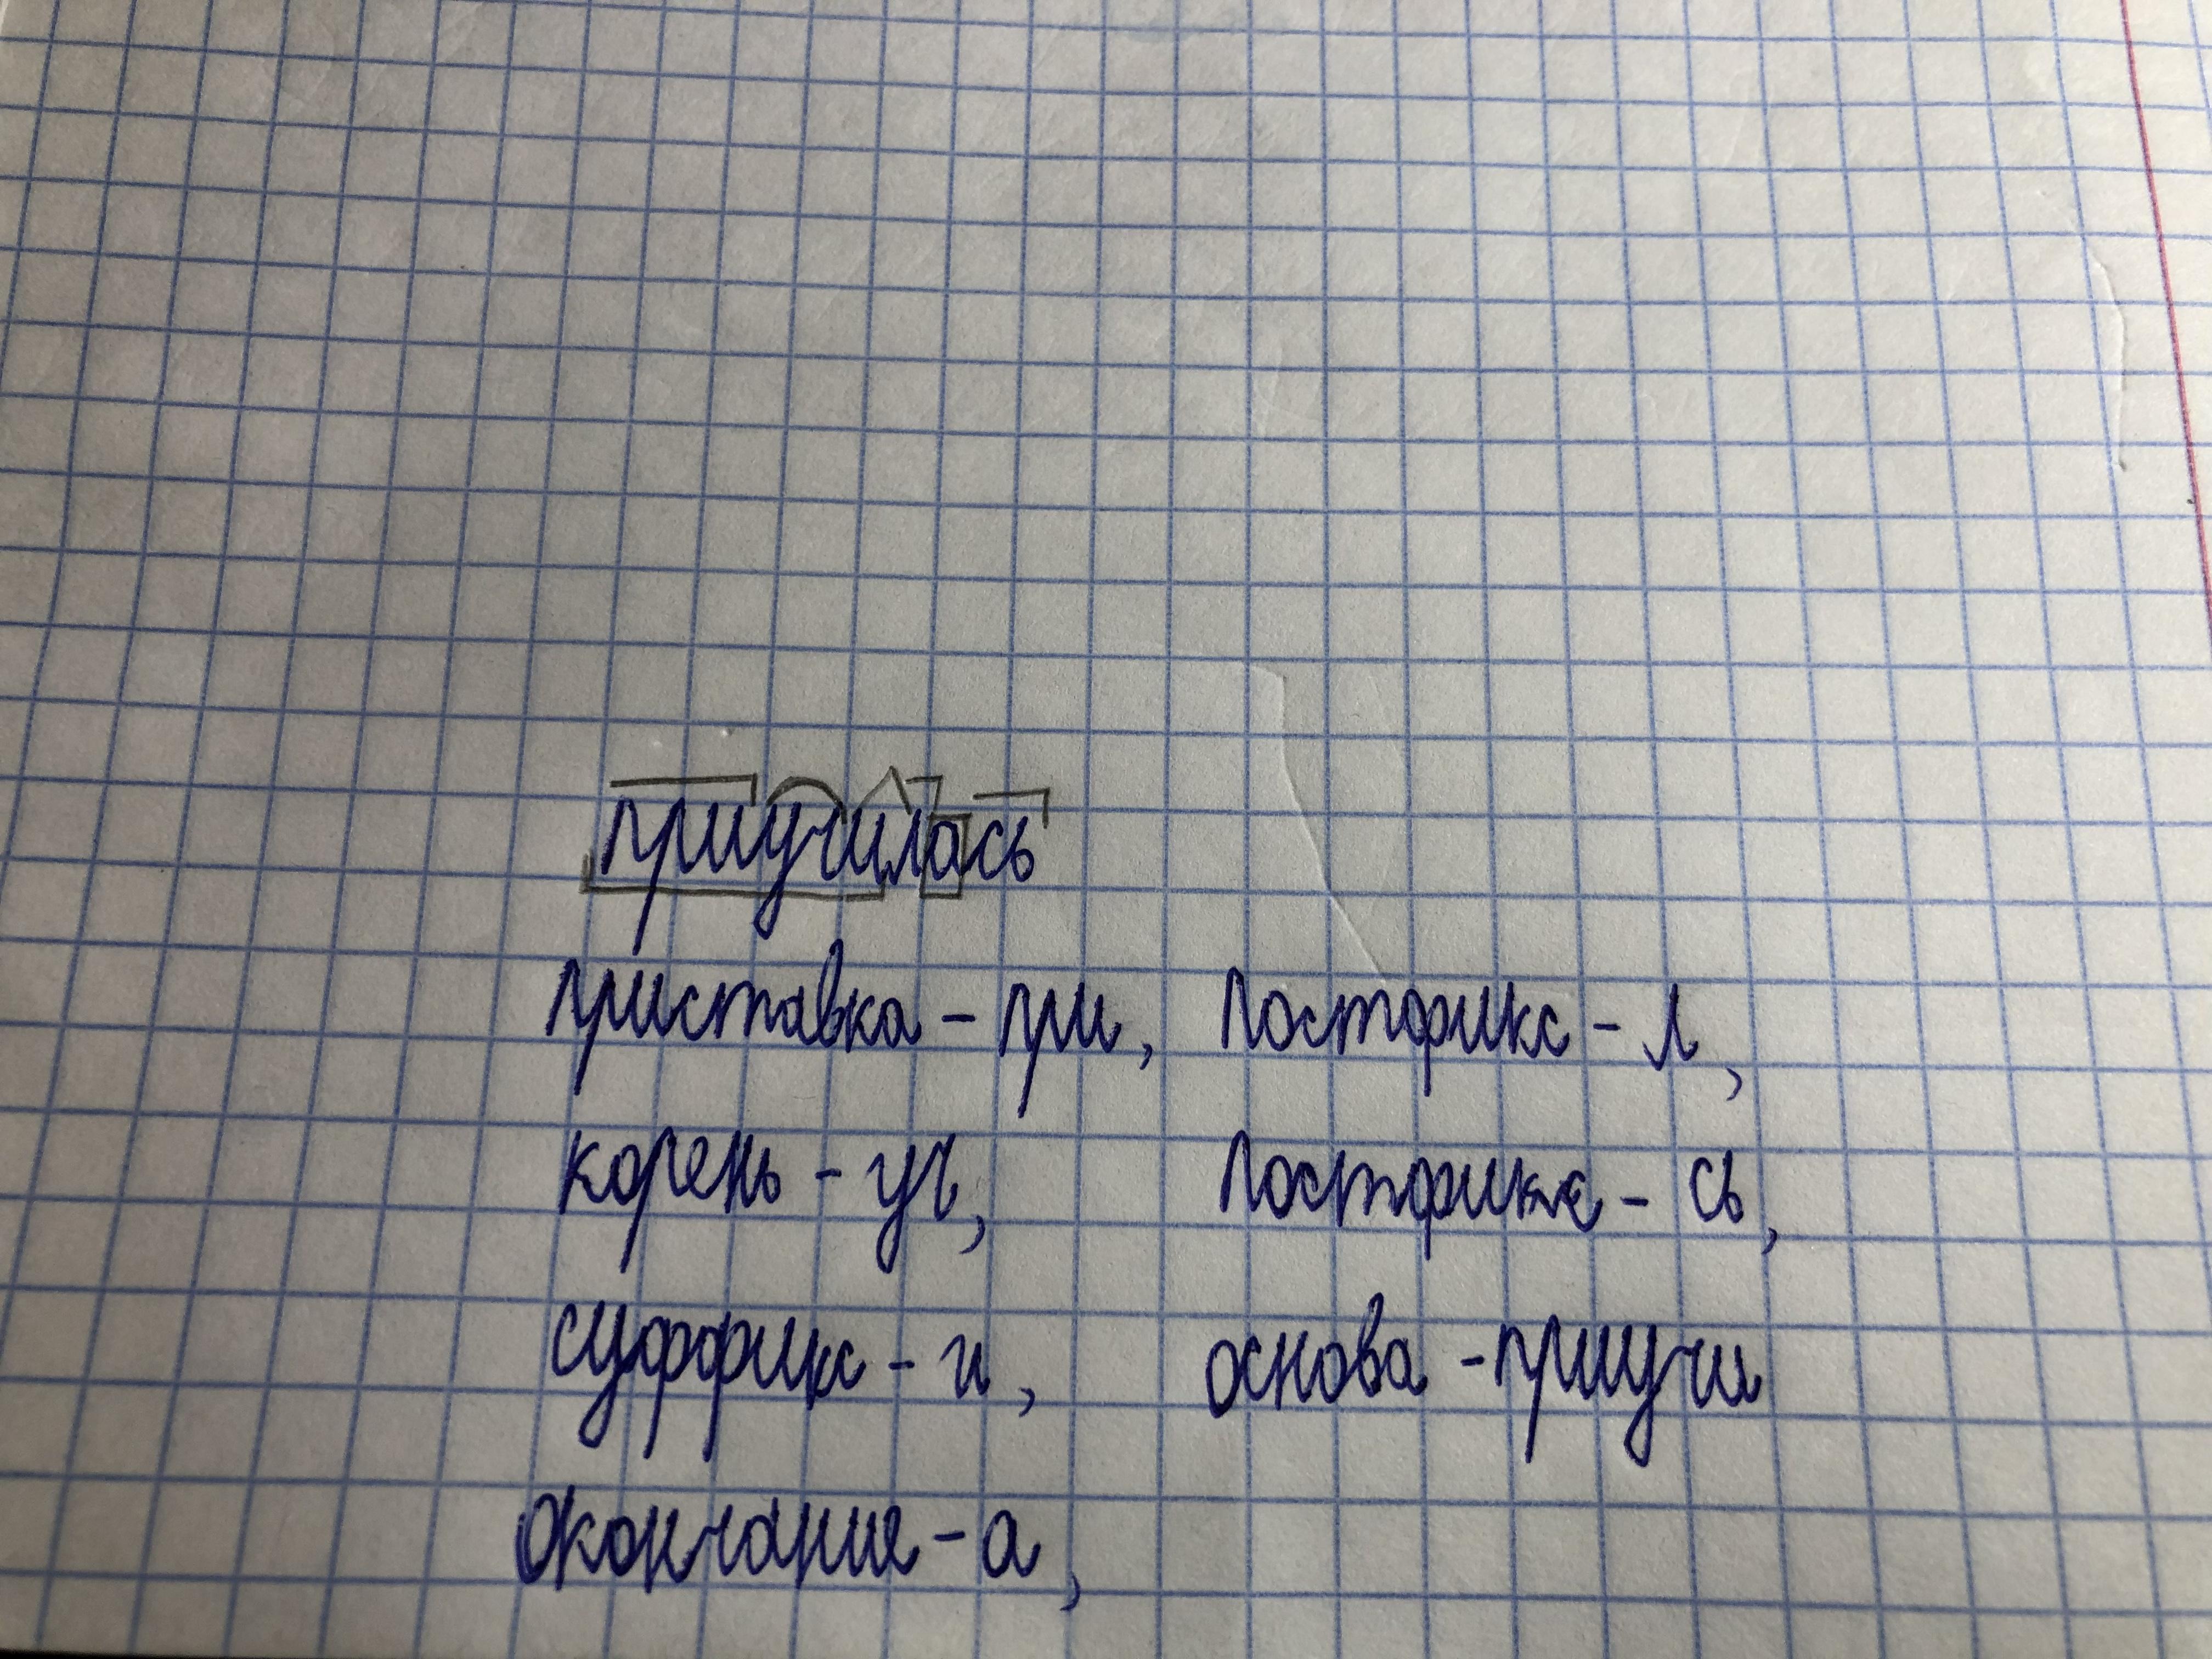 приучилась
приставка - при, постфикс - л,
корень - уч, постфикс - сь,
суффикс - и, основа - приучи
окончание - а,